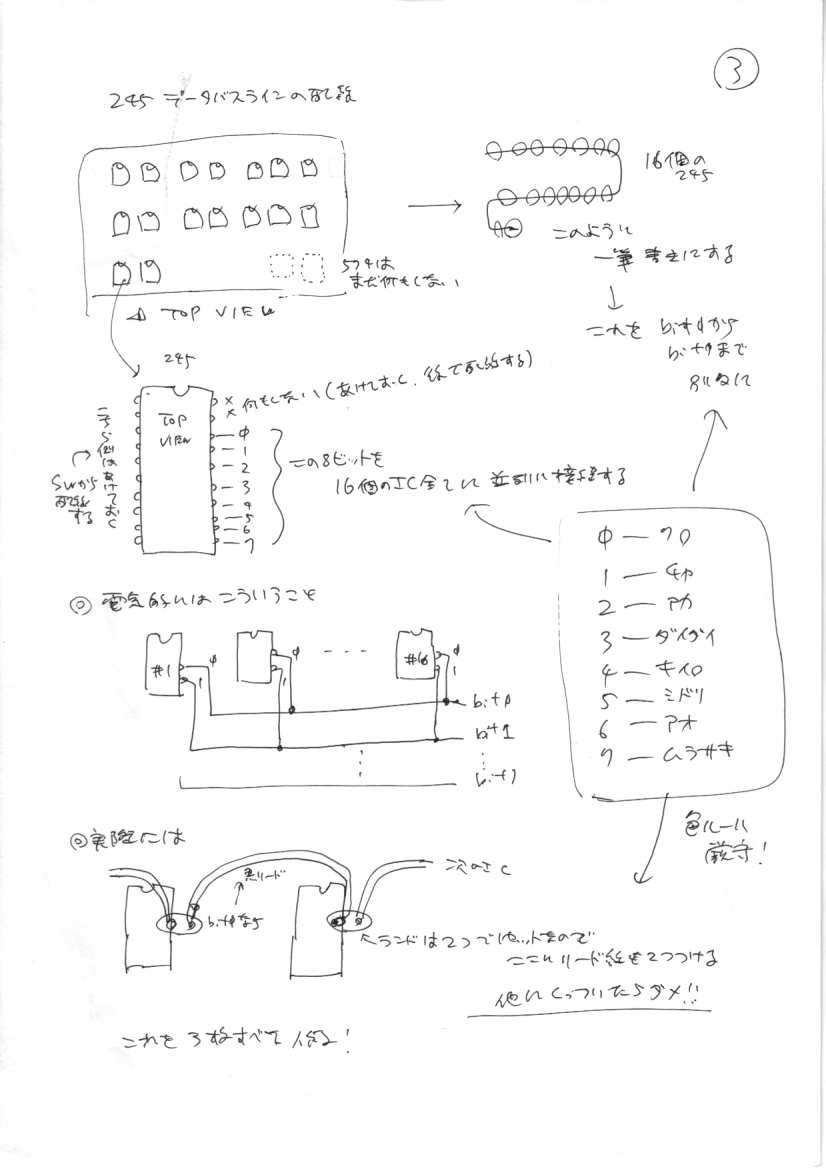 3
245 データバスラインの配線
16個の
245
このように
一筆書きにする
574は
まだ何もしない
TOP VIEW
これを bit0から
bit7まで
別々に
245
TOP
VIEW
× 何もしない(あけておく、後で配線する)
×
0
1
2
3
4
5
6
7
こちら側はあけておく
SWから
配線
する
この8ビットを
16個のIC全てに並列に接続する
0 — クロ
1 — チャ
2 — アカ
3 — ダイダイ
4 — キイロ
5 — ミドリ
6 — アオ
7 — ムラサキ
◎ 電気的にはこういうこと
#1
0
1
0
1
- - - -
#16
0
1
bit0
bit1
bit7
色ルール
厳守!
◎ 実際には
黒リード
bit0なら
次のIC
ランドは2つで1セットなので
ここにリード線を2つつける
他にくっついたらダメ!!
これを3枚すべて作る!